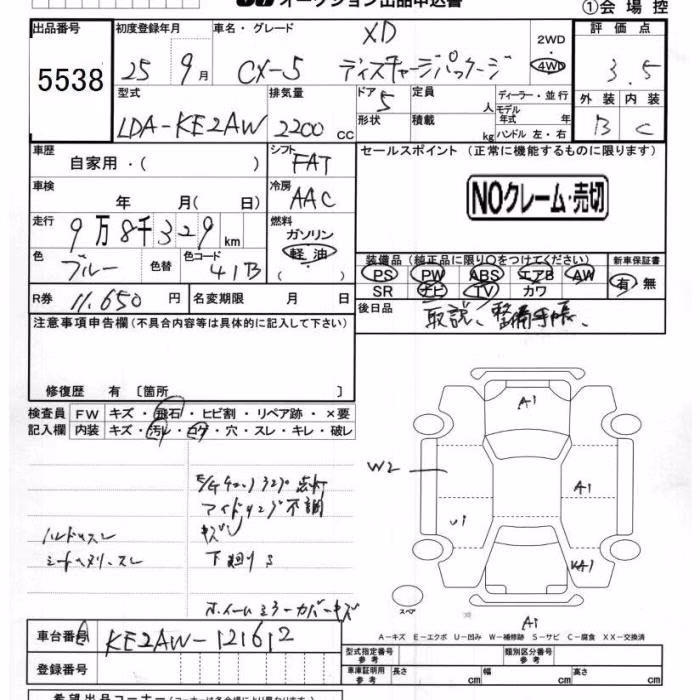 オークション出品申込書
①会場控
出品番号 初度登録年月 車名・グレード 評価点
5538 25 9月 CX-5 XD ディスチャージパッケージ 2WD 4WD 3.5
型式 排気量 ドア 定員 ディーラー・並行 外装 内装
LDA-KE2AW 2200cc 5 人 モデル年式 年 B C
形状 積載 kg ハンドル 左・右
車歴 シフト セールスポイント (正常に機能するものに限ります)
自家用・( ) FAT
車検 冷房 NOクレーム・売切
年 月( 日) AAC
走行 燃料
9万8千329km ガソリン
軽油
色 色替 色コード ( ) 装備品(純正品に限り○をつけてください) 新車保証書
ブルー 41B PS PW ABS エアB AW 有・無
SR ナビ TV カワ
R券 11.650円 名変期限 月 日 後日品 取説、整備手帳、
注意事項申告欄(不具合内容等は具体的に記入して下さい)
修復歴 有 〔箇所 〕
検査員 FW キズ・飛石・ヒビ割・リペア跡・×要
記入欄 内装 キズ・汚レ・コゲ・穴・スレ・キレ・破レ
A1
W2
A1
U1
アイドリング不調
キズ
下廻りS
ホイールミラーカバーキズ
スペア
A1
A-キズ E-エクボ U-凹み W-補修跡 S-サビ C-腐食 XX-交換済
車台番号 KE2AW-121612
型式指定番号 参考 類別区分番号 参考
登録番号 車庫証明用 参考 長さ cm 幅 cm 高さ cm
希望出品コーナー